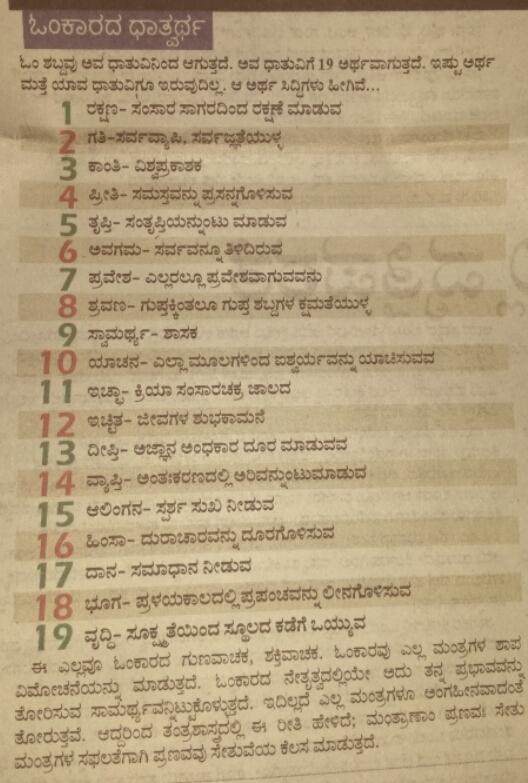 ಓಂಕಾರದ ಧಾತ್ವರ್ಥ
ಓಂ ಶಬ್ದವು ಅವ ಧಾತುವಿನಿಂದ ಆಗುತ್ತದೆ. ಅವ ಧಾತುವಿಗೆ 19 ಅರ್ಥವಾಗುತ್ತದೆ. ಇಷ್ಟು ಅರ್ಥ
ಮತ್ತೆ ಯಾವ ಧಾತುವಿಗೂ ಇರುವುದಿಲ್ಲ. ಆ ಅರ್ಥ ಸಿದ್ಧಿಗಳು ಹೀಗಿವೆ...
1 ರಕ್ಷಣ- ಸಂಸಾರ ಸಾಗರದಿಂದ ರಕ್ಷಣೆ ಮಾಡುವ
2 ಗತಿ-ಸರ್ವವ್ಯಾಪಿ, ಸರ್ವಜ್ಞತೆಯುಳ್ಳ
3 ಕಾಂತಿ- ವಿಶ್ವಪ್ರಕಾಶಕ
4 ಪ್ರೀತಿ- ಸಮಸ್ತವನ್ನು ಪ್ರಸನ್ನಗೊಳಿಸುವ
5 ತೃಪ್ತಿ- ಸಂತೃಪ್ತಿಯನ್ನುಂಟು ಮಾಡುವ
6 ಅವಗಮ- ಸರ್ವವನ್ನೂ ತಿಳಿದಿರುವ
7 ಪ್ರವೇಶ- ಎಲ್ಲರಲ್ಲೂ ಪ್ರವೇಶವಾಗುವವನು
8 ಶ್ರವಣ- ಗುಪ್ತಕ್ಕಿಂತಲೂ ಗುಪ್ತ ಶಬ್ದಗಳ ಕ್ಷಮತೆಯುಳ್ಳ
9 ಸ್ವಾಮರ್ಥ್ಯ- ಶಾಸಕ
10 ಯಾಚನ- ಎಲ್ಲಾ ಮೂಲಗಳಿಂದ ಐಶ್ವರ್ಯವನ್ನು ಯಾಚಿಸುವವ
11 ಇಚ್ಛಾ- ಕ್ರಿಯಾ ಸಂಸಾರಚಕ್ರ ಜಾಲದ
12 ಇಚ್ಛಿತ- ಜೀವಗಳ ಶುಭಕಾಮನೆ
13 ದೀಪ್ತಿ- ಅಜ್ಞಾನ ಅಂಧಕಾರ ದೂರ ಮಾಡುವವ
14 ವ್ಯಾಪ್ತಿ- ಅಂತಃಕರಣದಲ್ಲಿ ಅರಿವನ್ನುಂಟುಮಾಡುವ
15 ಆಲಿಂಗನ- ಸ್ಪರ್ಶ ಸುಖ ನೀಡುವ
16 ಹಿಂಸಾ- ದುರಾಚಾರವನ್ನು ದೂರಗೊಳಿಸುವ
17 ದಾನ- ಸಮಾಧಾನ ನೀಡುವ
18 ಭೂಗ- ಪ್ರಳಯಕಾಲದಲ್ಲಿ ಪ್ರಪಂಚವನ್ನು ಲೀನಗೊಳಿಸುವ
19 ವೃದ್ಧಿ- ಸೂಕ್ಷ್ಮತೆಯಿಂದ ಸ್ಥೂಲದ ಕಡೆಗೆ ಒಯ್ಯುವ
ಈ ಎಲ್ಲವೂ ಓಂಕಾರದ ಗುಣವಾಚಕ, ಶಕ್ತಿವಾಚಕ. ಓಂಕಾರವು ಎಲ್ಲ ಮಂತ್ರಗಳ ಶಾಪ
ವಿಮೋಚನೆಯನ್ನು ಮಾಡುತ್ತದೆ. ಓಂಕಾರದ ನೇತೃತ್ವದಲ್ಲಿಯೇ ಅದು ತನ್ನ ಪ್ರಭಾವವನ್ನು
ತೋರಿಸುವ ಸಾಮರ್ಥ್ಯವನ್ನಿಟ್ಟುಕೊಳ್ಳುತ್ತದೆ. ಇದಿಲ್ಲದೆ ಎಲ್ಲ ಮಂತ್ರಗಳೂ ಅಂಗಹೀನವಾದಂತೆ
ತೋರುತ್ತವೆ. ಆದ್ದರಿಂದ ತಂತ್ರಶಾಸ್ತ್ರದಲ್ಲಿ ಈ ರೀತಿ ಹೇಳಿದೆ; ಮಂತ್ರಾಣಾಂ ಪ್ರಣವಃ ಸೇತು
ಮಂತ್ರಗಳ ಸಫಲತೆಗಾಗಿ ಪ್ರಣವವು ಸೇತುವೆಯ ಕೆಲಸ ಮಾಡುತ್ತದೆ.